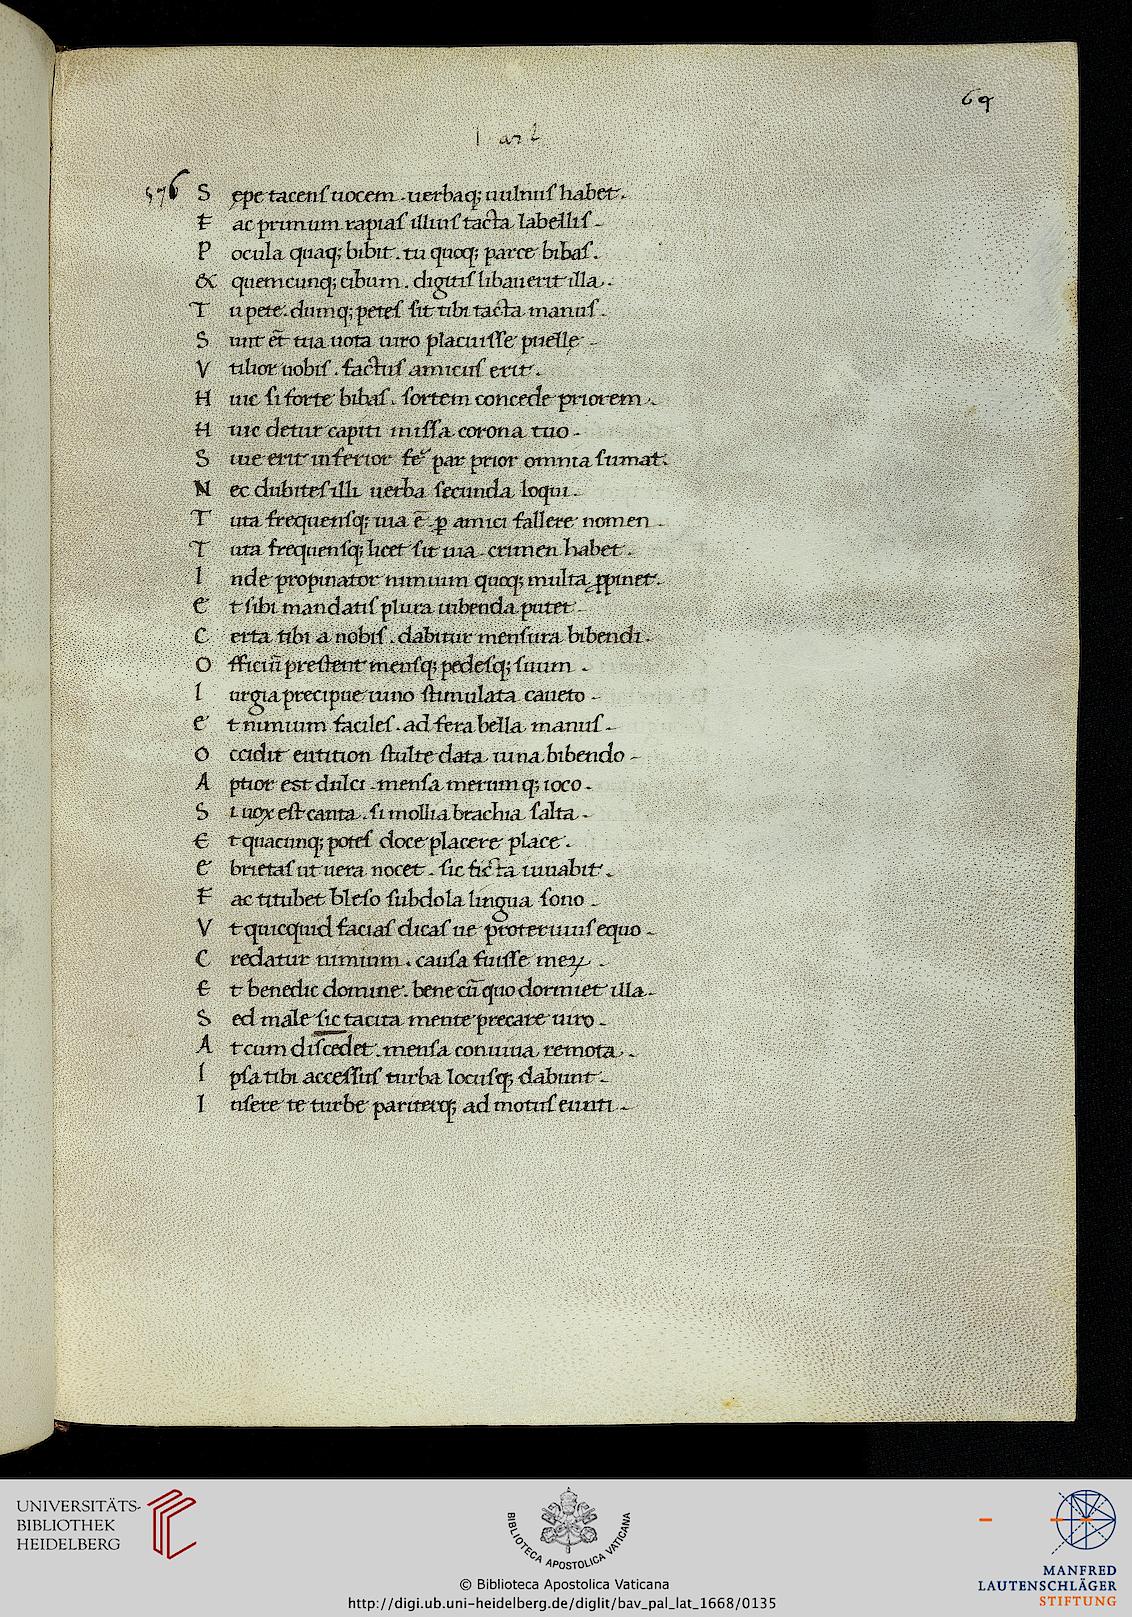 69
I art
576 S epe tacens uocem . uerbaq; uulnus habet .
F ac primum rapias illius tacta labellis .
P ocula quaq; bibit . tu quoq; parce bibas .
& quemcunq; cibum . digitis libauerit illa .
T u pete . dumq; petes sit tibi tacta manus .
S int et̄ tua uota uiro placuisse puellę .
V tilior uobis . factus amicus erit .
H uic si forte bibas . sortem concede priorem .
H uic detur capiti missa corona tuo .
S iue erit inferior seu par prior omnia sumat .
N ec dubites illi uerba secunda loqui .
T uta frequensq; uia ē . ꝑ amici fallere nomen .
T uta frequensq; licet sit uia . crimen habet .
I nde propinator nimium quoq; multa ꝓpinet .
E t sibi mandatis plura uibenda putet .
C erta tibi a nobis . dabitur mensura bibendi .
O fficiū prestent mensq; pedesq; suum .
I urgia precipue uino stimulata caueto .
E t nimium faciles . ad fera bella manus .
O ccidit eutition stulte data uina bibendo .
A ptior est dulci . mensa merumq; ioco .
S i uox est canta . si mollia brachia salta .
E t quacunq; potes doce placere place .
E brietas ut uera nocet . sic ficta iuuabit .
F ac titubet bleso subdola lingua sono .
V t quicquid facias dicas ue proteruius equo .
C redatur nimium . causa fuisse meꝝ .
E t benedic domine . bene cū quo dormiet illa .
S ed male sic tacita mente precare uiro .
A t cum discedet . mensa conuiua remota .
I psa tibi accessus turba locusq; dabunt .
I nsere te turbe pariterq; ad motus eunti .
UNIVERSITÄTS-
BIBLIOTHEK
HEIDELBERG
BIBLIOTECA APOSTOLICA VATICANA
MANFRED
LAUTENSCHLÄGER
STIFTUNG
© Biblioteca Apostolica Vaticana
http://digi.ub.uni-heidelberg.de/diglit/bav_pal_lat_1668/0135